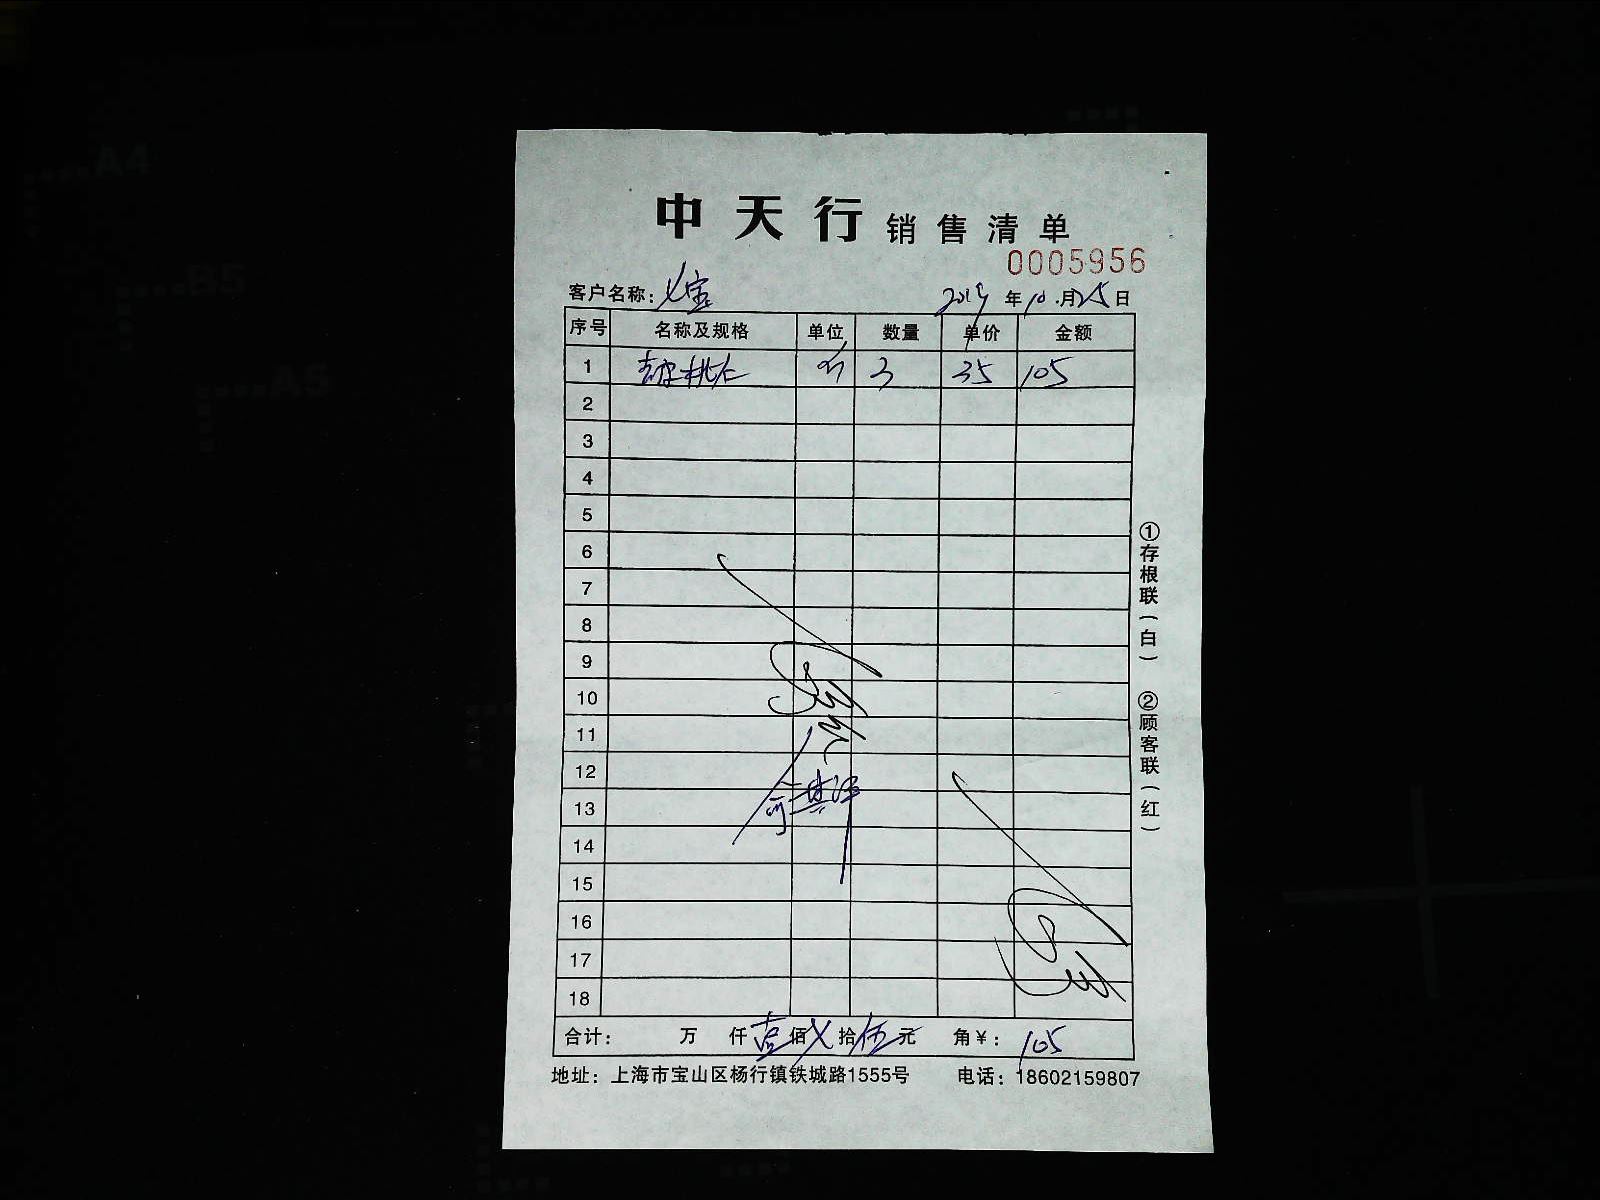 中天行 销售清单
0005956
客户名称: 2019 年 10 月 25 日
序号 名称及规格 单位 数量 单价 金额
1 桃仁 斤 3 35 105
2
3
4
5
6
7
8
9
10
11
12
13
14
15
16
17
18
合计: 万 仟 壹 佰 拾 伍 元 角 ¥: 105
地址: 上海市宝山区杨行镇铁城路1555号 电话: 18602159807
①存根联(白) ②顾客联(红)
A4
B5
A5